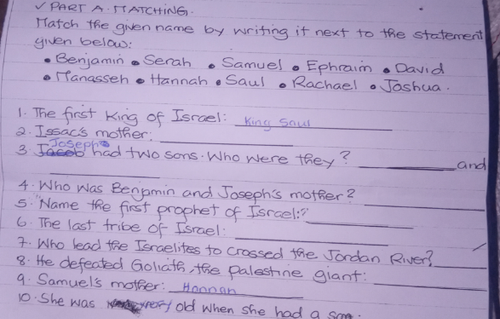 ✓ PART A. MATCHING.
Match the given name by writing it next to the statement
given below:
• Benjamin • Serah • Samuel • Ephraim • David
• Manasseh • Hannah • Saul • Rachael • Joshua.
1. The first King of Israel: King Saul
2. Issac's mother:
3. Joseph had two sons. Who were they? and
4. Who was Benjamin and Joseph's mother?
5. Name the first prophet of Israel:
6. The last tribe of Israel:
7. Who lead the Israelites to crossed the Jordan River?
8. He defeated Goliath, the palestine giant:
9. Samuel's mother: Hannah
10. She was very old when she had a son.